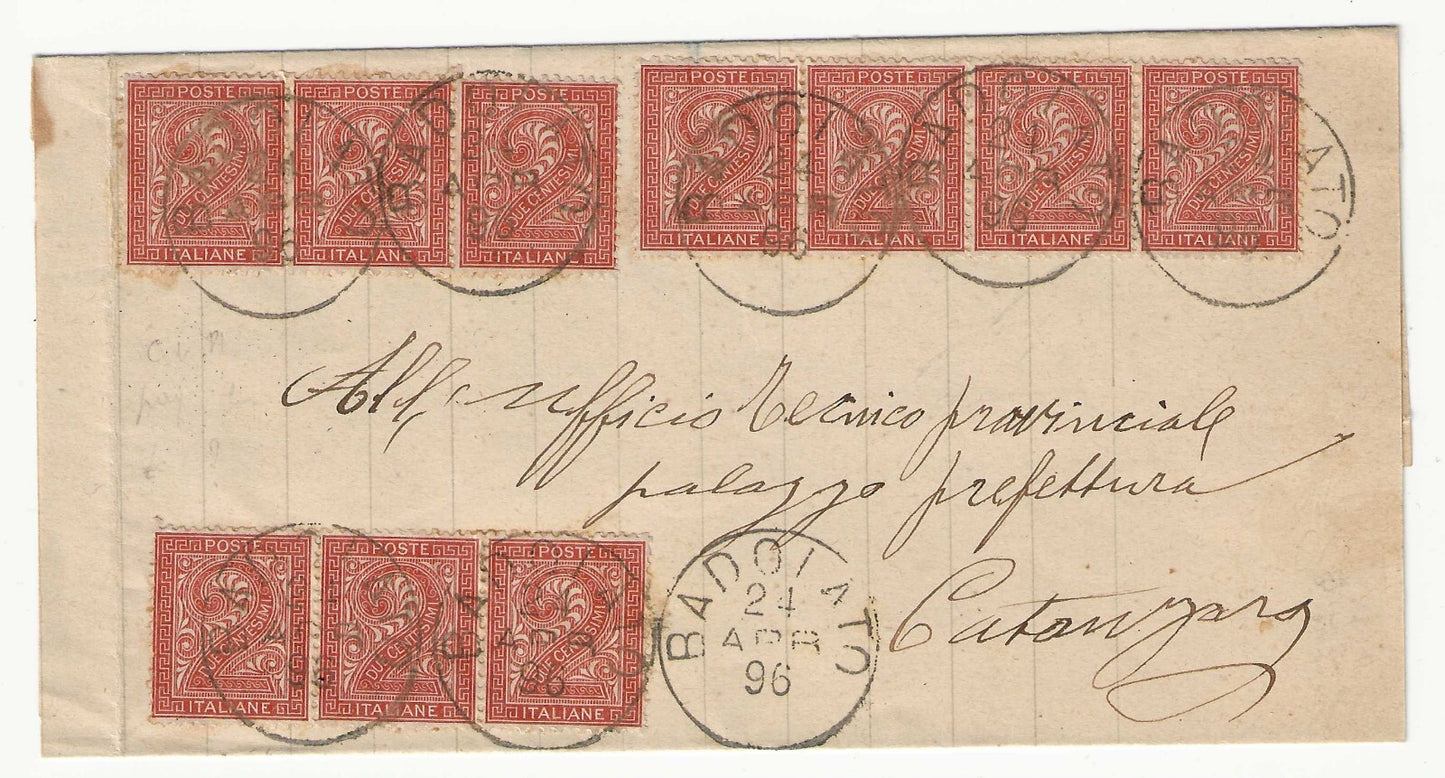 POSTE POSTE POSTE POSTE POSTE POSTE POSTE
DUE CENTESIMI DUE CENTESIMI DUE CENTESIMI DUE CENTESIMI DUE CENTESIMI DUE CENTESIMI DUE CENTESIMI
ITALIANE ITALIANE ITALIANE ITALIANE ITALIANE ITALIANE ITALIANE
All'ufficio Tecnico provinciale
palazzo prefettura
Catanzaro
POSTE POSTE POSTE
DUE CENTESIMI DUE CENTESIMI DUE CENTESIMI
ITALIANE ITALIANE ITALIANE
BADOLATO
24
APR
96